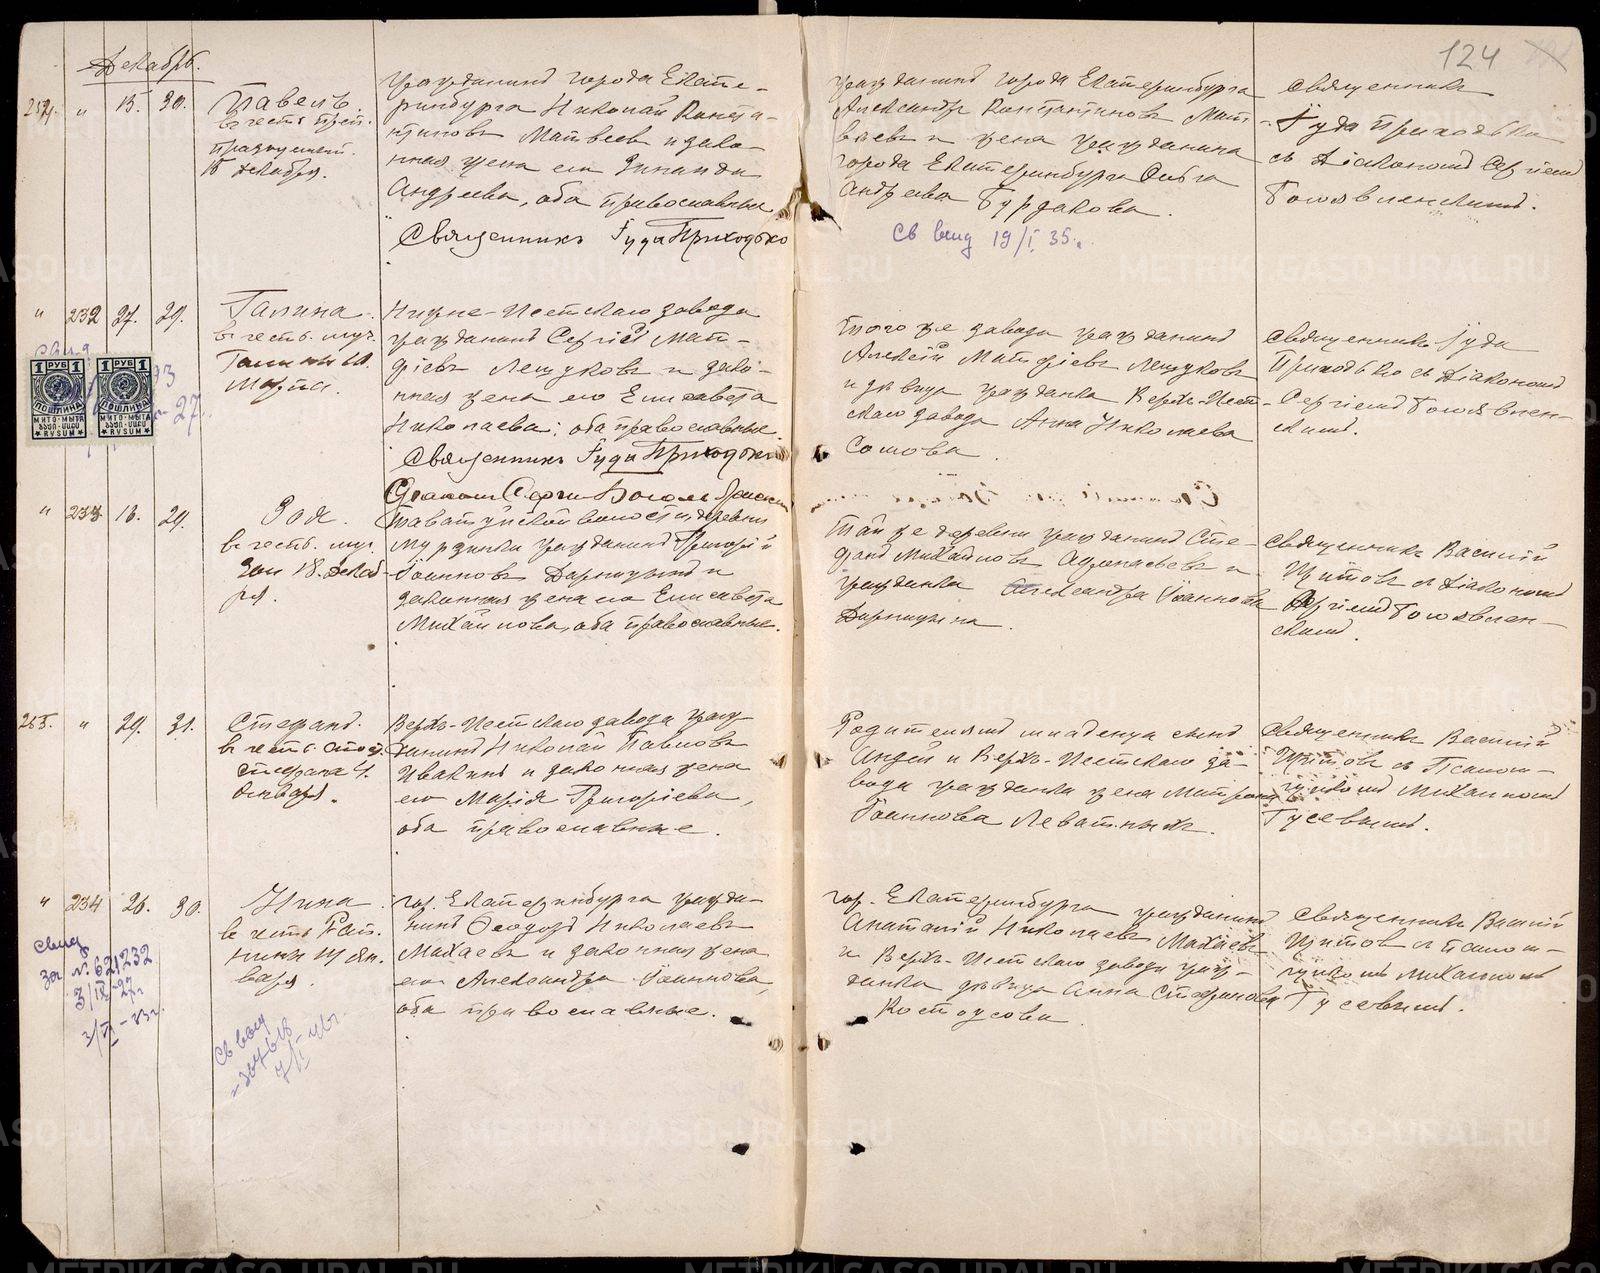 124
Декабрь.
254. " 15. 30.
Павелъ.
въ честь преп.
празднует.
15 декабря.
гражданинъ города Екате-
ринбурга Николай Конста-
нтиновъ Матвеевъ и зако-
нная жена его Зинаида
Андреева, оба православные
Священникъ Іуда Приходько
гражданинъ города Екатеринбурга
Александръ Константиновъ Мат-
веевъ и жена гражданина
города Екатеринбурга Ольга
Андреева Бурдакова.
Св выд 19/I 35г.
Священникъ
Іуда Приходько
съ діакономъ Сергіемъ
Богоявленскимъ.
" 232 27. 29.
Галина.
въ честь муч.
Галины 16.
Марта.
Нижне-Исетскаго завода
гражданинъ Сергій Мат-
фіевъ Лещуковъ и зако-
нная жена его Елисавета
Николаева; оба православные
Священникъ Іуда Приходько
Діаконъ Сергій Богоявленскій
Того же завода гражданинъ
Алексій Матфіевъ Лещуковъ
и дѣвица гражданка Верхъ-Исет-
скаго завода Анна Николаева
Сомова.
Священникъ Іуда
Приходько съ діакономъ
Сергіемъ Богоявлен-
скимъ.
1 РУБ 1
ПОШЛИНА
МИТО-МЫТА
RUSUM
1 РУБ 1
ПОШЛИНА
МИТО-МЫТА
RUSUM
27.
" 233 18. 29.
Зоя.
въ честь муч.
Зои 18. декаб-
ря.
Таватуйской волости, деревни
Мурзинки гражданинъ Григорій
Іоанновъ Дарницынъ и
законная жена его Елисавета
Михаилова, оба православные.
Той же деревни гражданинъ Сте-
фанъ Михаиловъ Афанасьевъ и
гражданка Александра Іоаннова
Дарницына.
Священникъ Василій
Щитовъ съ діакономъ
Сергіемъ Богоявлен-
скимъ.
255. " 29. 31.
Стефанъ.
въ честь апос.
Стефана 4.
Января.
Верхъ-Исетскаго завода граж-
данинъ Николай Павловъ
Ивакинъ и законная жена
его Марія Григоріева,
оба православные.
Родителямъ младенца сынъ
Андрей и Верхъ-Исетскаго за-
вода гражданка жена Матрона
Іоаннова Леватныхъ.
Священникъ Василій
Щитовъ съ Псалом-
щикомъ Михаиломъ
Гусевымъ.
" 234 26. 30.
Нина.
въ честь Рав.
Нины 14 ян-
варя.
гор. Екатеринбурга гражда-
нинъ Ѳеодоръ Николаевъ
Махаевъ и законная жена
его Александра Іоаннова,
оба православные.
гор. Екатеринбурга гражданинъ
Анатолій Николаевъ Махаевъ
и Верхъ-Исетскаго завода граж-
данка дѣвица Анна Стефанова
Костоусова.
Священникъ Василій
Щитовъ съ псалом-
щикомъ Михаиломъ
Гусевымъ.
Свид
за № 621232
3/IX-27г
Св выд